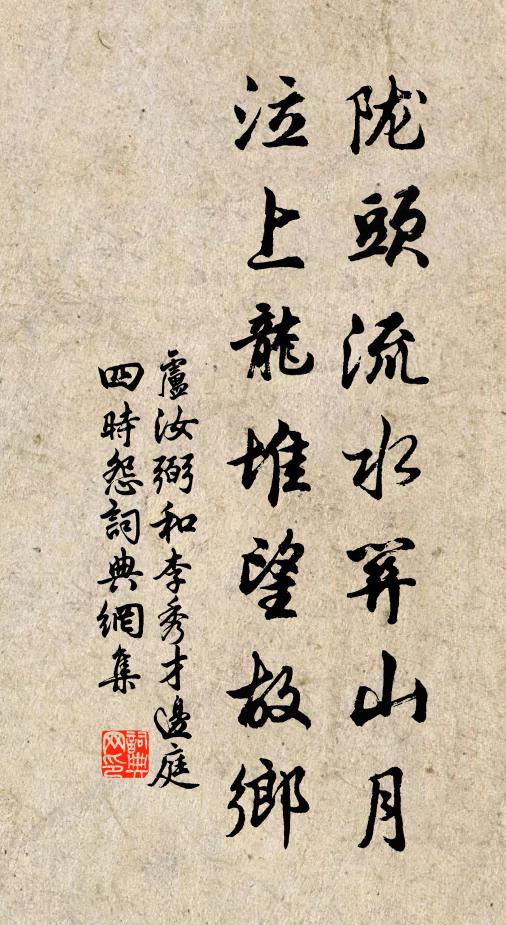 陇頭流水関山月
泣上龍堆望故鄉
盧汝弼和李秀才邊庭
四時怨詞典網集
詞典網印